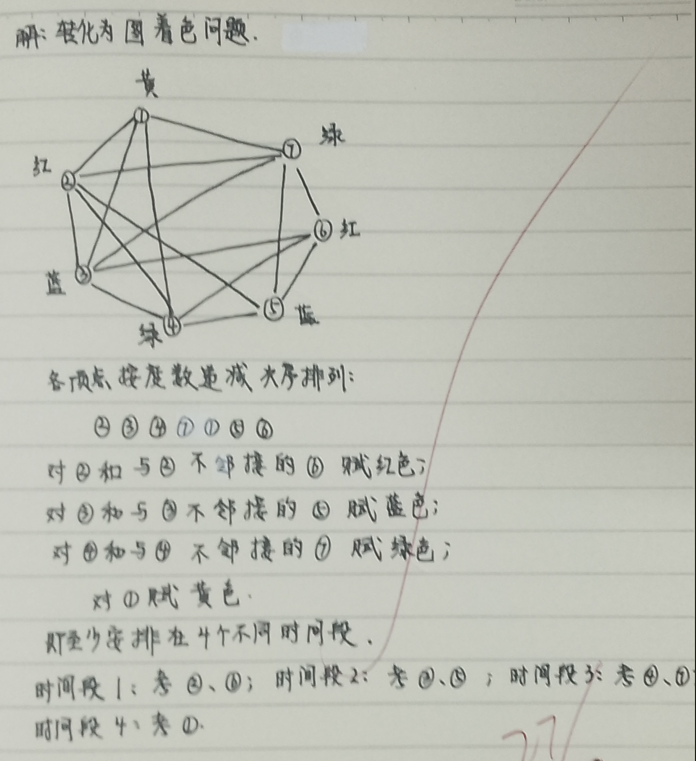 解:转化为图着色问题.
黄
①
⑦ 绿
红 ②
⑥ 红
蓝 ③
⑤ 蓝
绿 ④
各顶点按度数递减次序排列:
② ③ ④ ⑦ ① ⑤ ⑥
对②和与②不邻接的⑥赋红色;
对③和与③不邻接的⑤赋蓝色;
对④和与④不邻接的⑦赋绿色;
对①赋黄色.
则至少安排在4个不同时间段.
时间段1:考②、⑥; 时间段2:考③、⑤; 时间段3:考④、⑦
时间段4、考①.